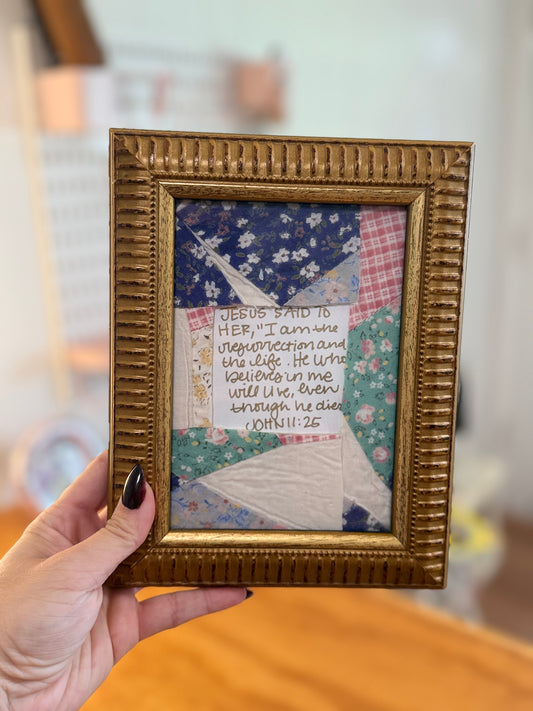 JESUS SAID TO
HER, "I am the
resurrection and
the life. He who
believes in me
will live, even
though he dies
JOHN 11:25